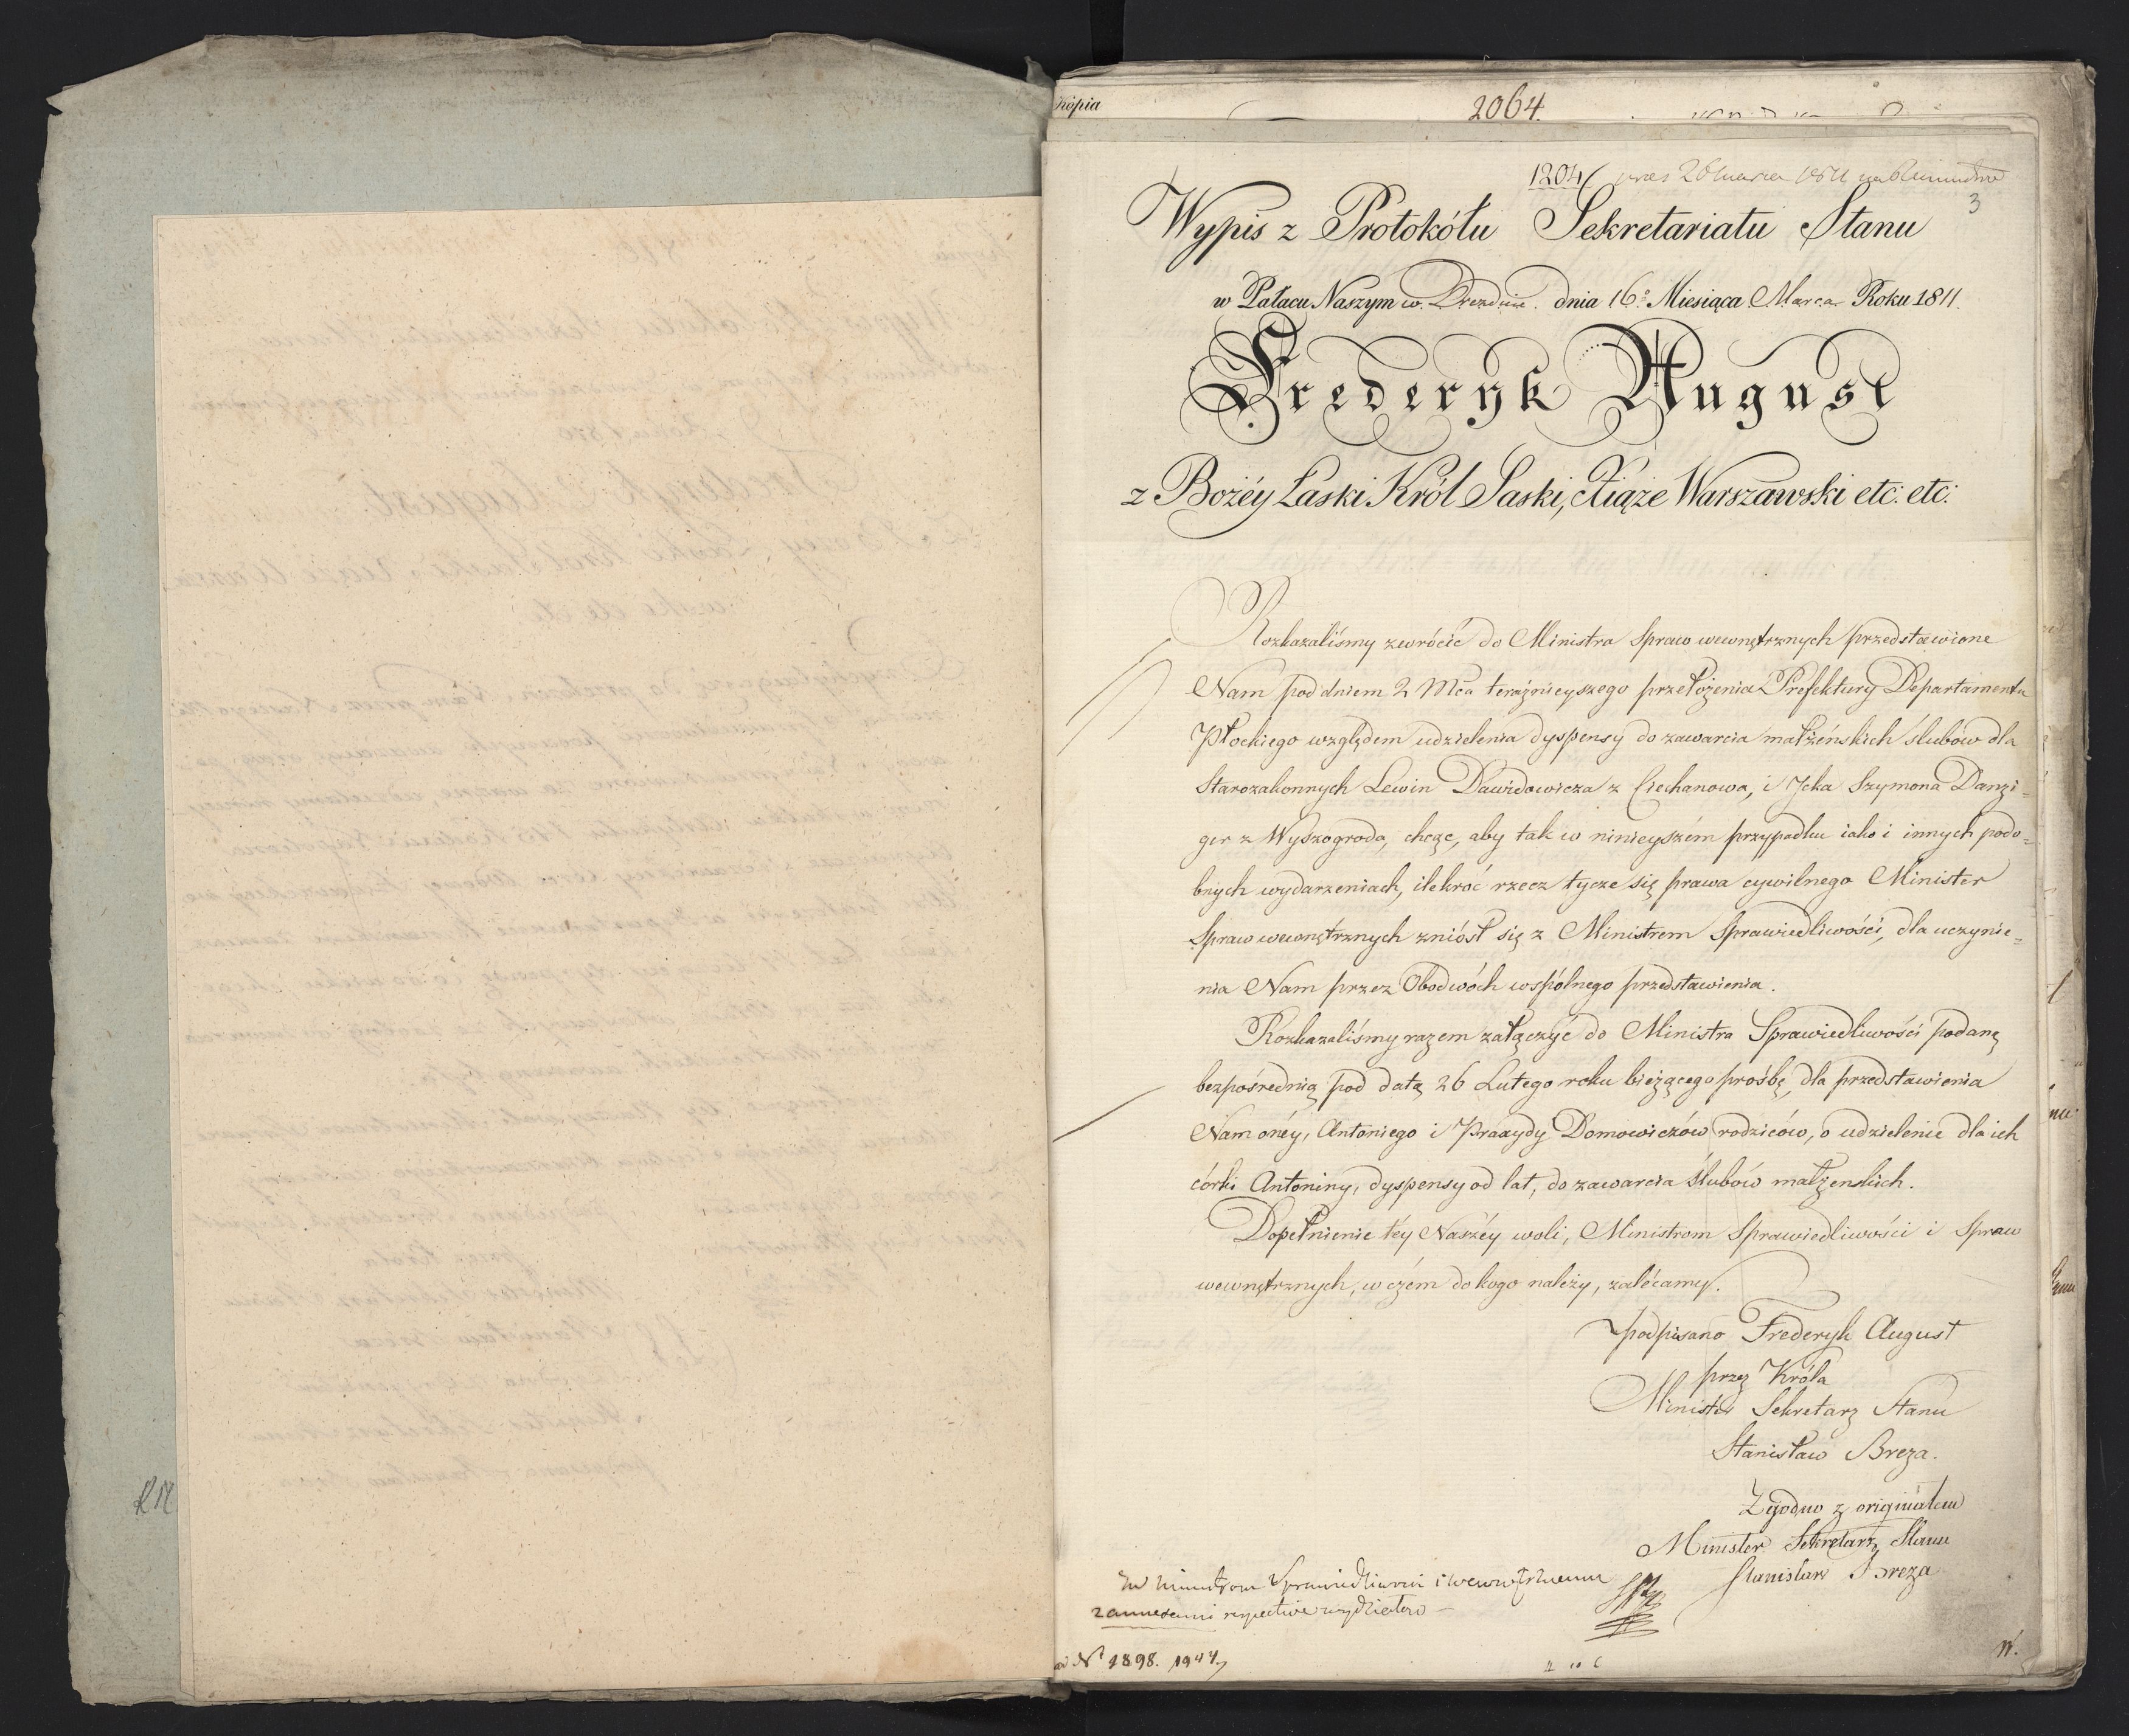 Kopia
2064.
1204
3
Wypis z Protokółu Sekretariatu Stanu
w Pałacu Naszym w Dreźnie dnia 16º Miesiąca Marca Roku 1811.
Frederyk August
z Bożéy Łaski Król Saski, Xiąże Warszawski etc: etc:
Rozkazaliśmy zwrócić do Ministra Spraw wewnętrznych przedstawione
Nam pod dniem 2 Mca teraźnieyszego przełożenia Prefektury Departamentu
Płockiego względem udzielenia dyspensy do zawarcia małżeńskich ślubów dla
Starozakonnych Lewin Dawidowicza z Ciechanowa, i Icka Szymona Danzi-
ger z Wyszogroda, chcąc, aby tak w ninieyszém przypadku iako i innych podo-
bnych wydarzeniach, ilekroć rzecz tycze się prawa cywilnego Minister
Spraw wewnętrznych zniósł się z Ministrem Sprawiedliwości, dla uczynie-
nia Nam przez Obodwóch wspólnego przedstawienia.
Rozkazaliśmy razem załączyć do Ministra Sprawiedliwości podaną
bezpośrednią pod datą 26 Lutego roku bieżącego prośbę, dla przedstawienia
Nam onéy, Antoniego i Praxydy Domowiczów rodziców, o udzielenie dla ich
córki Antoniny, dyspensy od lat, do zawarcia ślubów małżenskich.
Dopełnienie téy Naszéy woli, Ministrom Sprawiedliwości i Spraw
wewnętrznych, w czém do kogo należy, zalécamy.
podpisano Frederyk August
przez Króla
Minister Sekretarz Stanu
Stanisław Breza.
Zgodno z originałem
Minister Sekretarz Stanu
Stanisław Breza
Ministrom Sprawiedliwości i wewnętrznemu
respective wydziałów
Nº 1898. 1944
RM